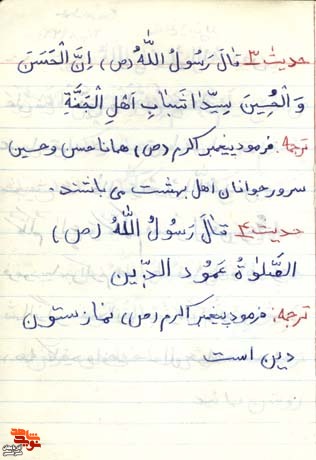 حدیث ۳ قالَ رَسُولُ اللّهُ (ص) اِنَّ الْحَسَنَ
وَ الْحُسِینَ سِیِّدا شَبابِ اَهْلِ الْجَنَّةِ
ترجمه. فرمود پیغمبر اکرم (ص) همانا حسن و حسین
سرور جوانان اهل بهشت می باشند.
حدیث ۴ قالَ رَسُولُ اللّهُ (ص)
الصَّلوةُ عَمُود الدّین
ترجمه. فرمود پیغمبر اکرم (ص) نماز ستون
دین است